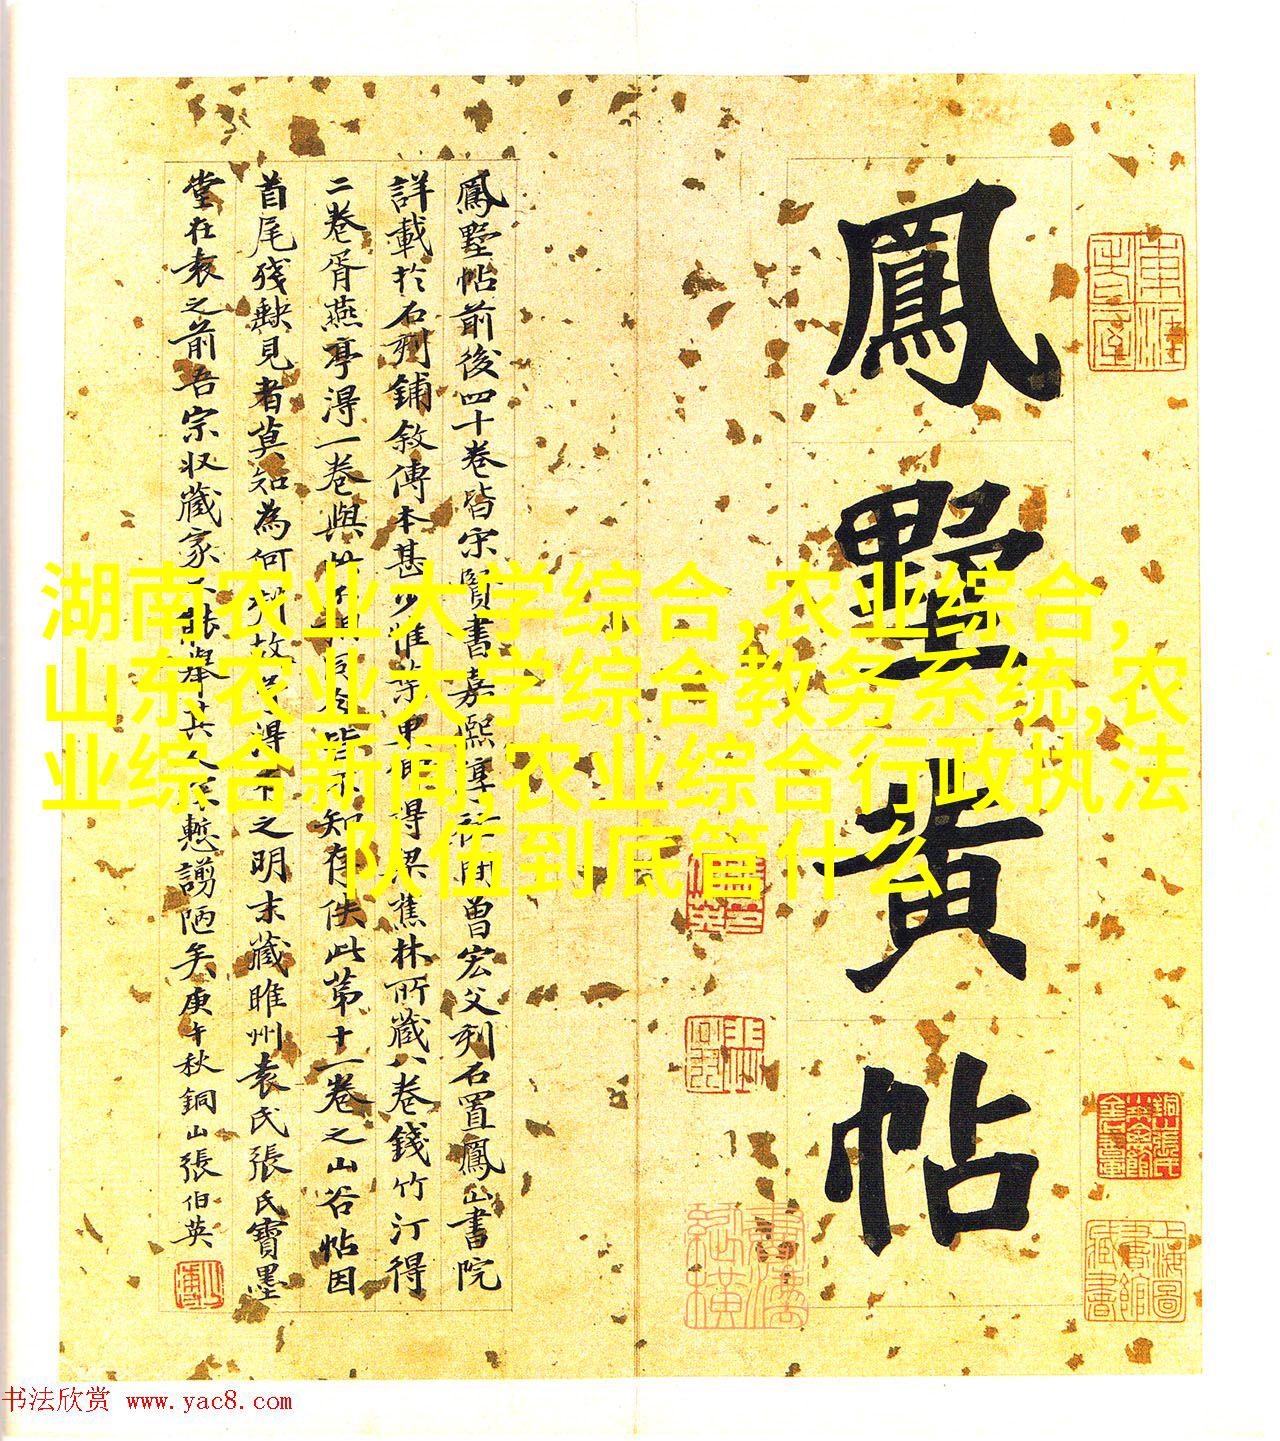 鳳墅黄帖
鳳墅帖前後四十卷皆宋賢書嘉熙淳祐間曾宏父刻石置鳳山書院
詳載於石刻鋪敘傳本甚少惟葉東卿得梁蕉林所藏八卷錢竹汀得
二卷胥燕亭得一卷與此 今皆不知存佚此第十一卷之山谷帖因
首尾殘缺見者莫知為何刻故 得 之明末藏睢州袁氏張氏寶墨
堂在袁之前吾宗收藏家不能舉其人 慙謭陋矣庚午秋銅山張伯英
上海圖書館藏書
湖南农业大学综合,农业综合,
山东农业大学综合教务系统,农
业综合新闻,农业综合行政执法
队伍到底管什么
书法欣赏 www.yac8.com